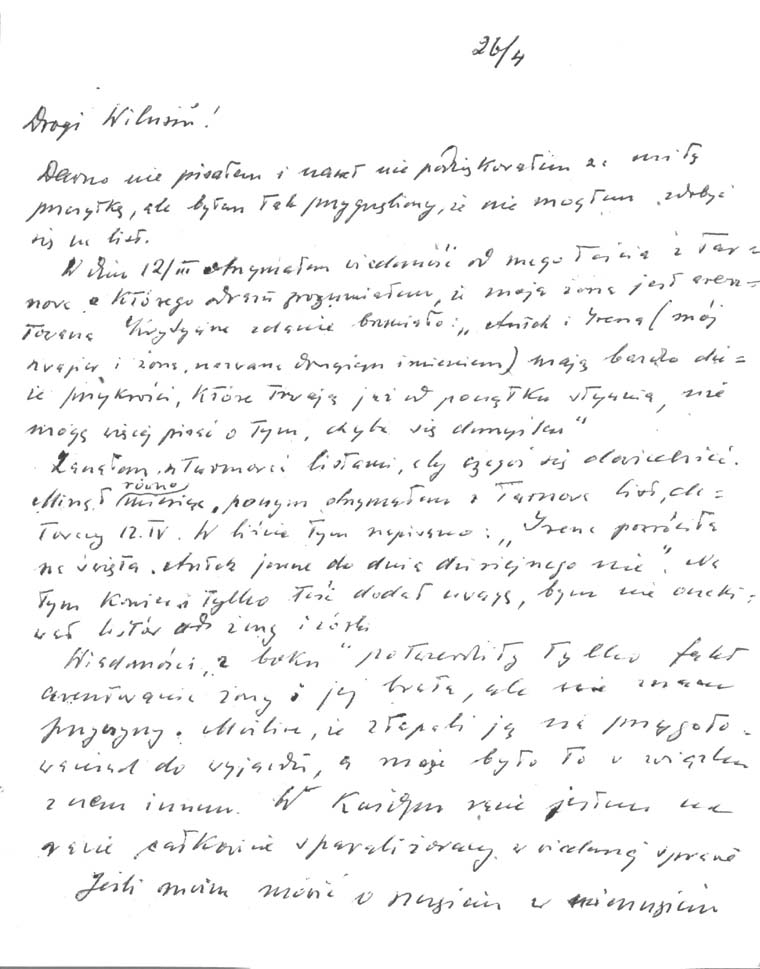 26/4
Drogi Wilusiu!
Dawno nie pisałem i nawet nie podziękowałem za miłą
paczytkę, ale byłem tak przygnębiony, że nie mogłem zdobyć
się na list.
W dniu 12/III otrzymałem wiadomość od mego teścia z Tar=
nowa z którego odrazu zrozumiałem, że moja żona jest aresz=
towana Krytyczne zdanie brzmiało: „Antek i Irena (mój
szwagier i żona, nazwana drugiem imieniem) mają bardzo du=
że przykrości, które trwają już od początku stycznia, nie
mogę więcej pisać o tym, chyba się domyślasz"
Zacząłem Tarnować listami, aby czegoś się dowiedzieć.
Minął równo miesiąc, ponym otrzymałem z Tarnowa list, da=
towany 12.IV. W liście tym napisano: „Irena powróciła
na święta, Antek jeszcze do dnia dzisiejszego nie". Na
tym koniec i tylko teść dodał uwagę, bym nie oczeki=
wał listów od żony i córki
Wiadomości „z boku" potwierdziły tylko fakt
aresztowania żony i jej brata, ale nie znam
przyczyny. Możliwe, że złapali ją na przygoto=
waniach do wyjazdu, a może było to w związku
z czem innem. W każdym razie jestem na
razie całkowicie sparaliżowany w wiadomej sprawie
Jeśli można mówić o szczęściu w nieszczęściu